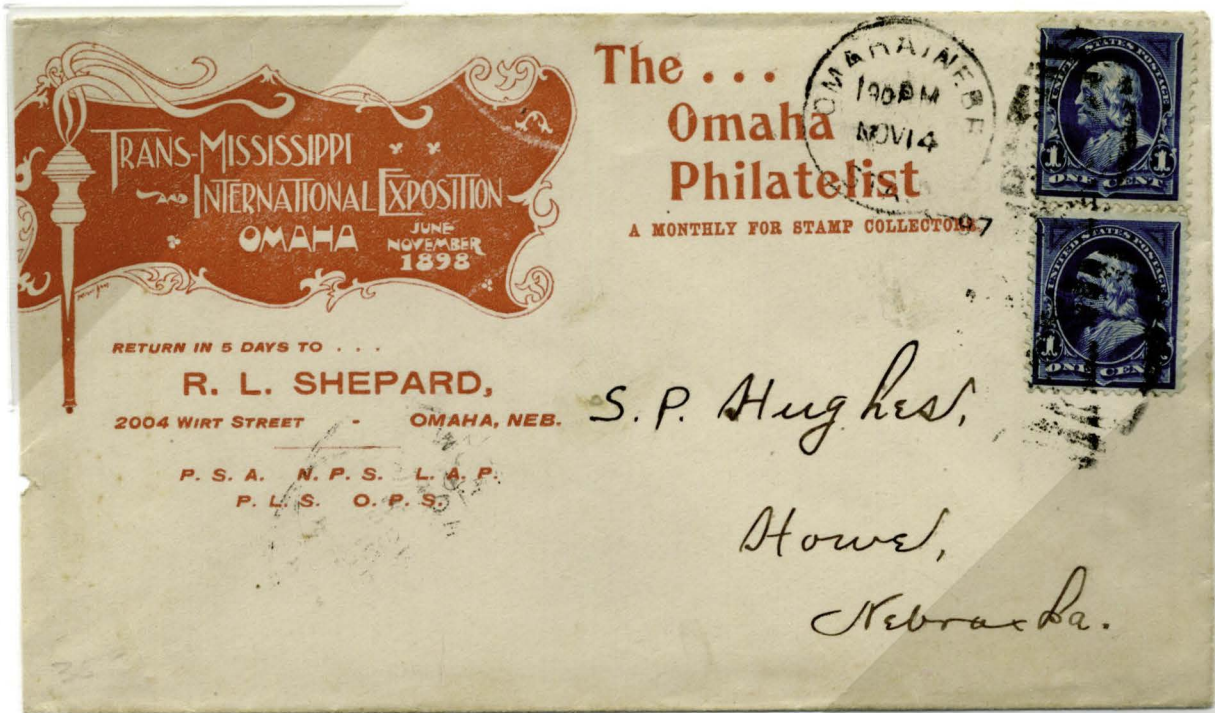 TRANS-MISSISSIPPI
AND INTERNATIONAL EXPOSITION
OMAHA JUNE
NOVEMBER
1898
The . . .
Omaha
Philatelist
A MONTHLY FOR STAMP COLLECTORS.
OMAHA, NEBR
PM
NOV 14
97
UNITED STATES POSTAGE
1 1
ONE CENT
UNITED STATES POSTAGE
1
ONE CENT
RETURN IN 5 DAYS TO . . .
R. L. SHEPARD,
2004 WIRT STREET - OMAHA, NEB.
P. S. A. N. P. S. L. A. P.
P. L. S. O. P. S.
S. P. Hughes,
Howe,
Nebraska.